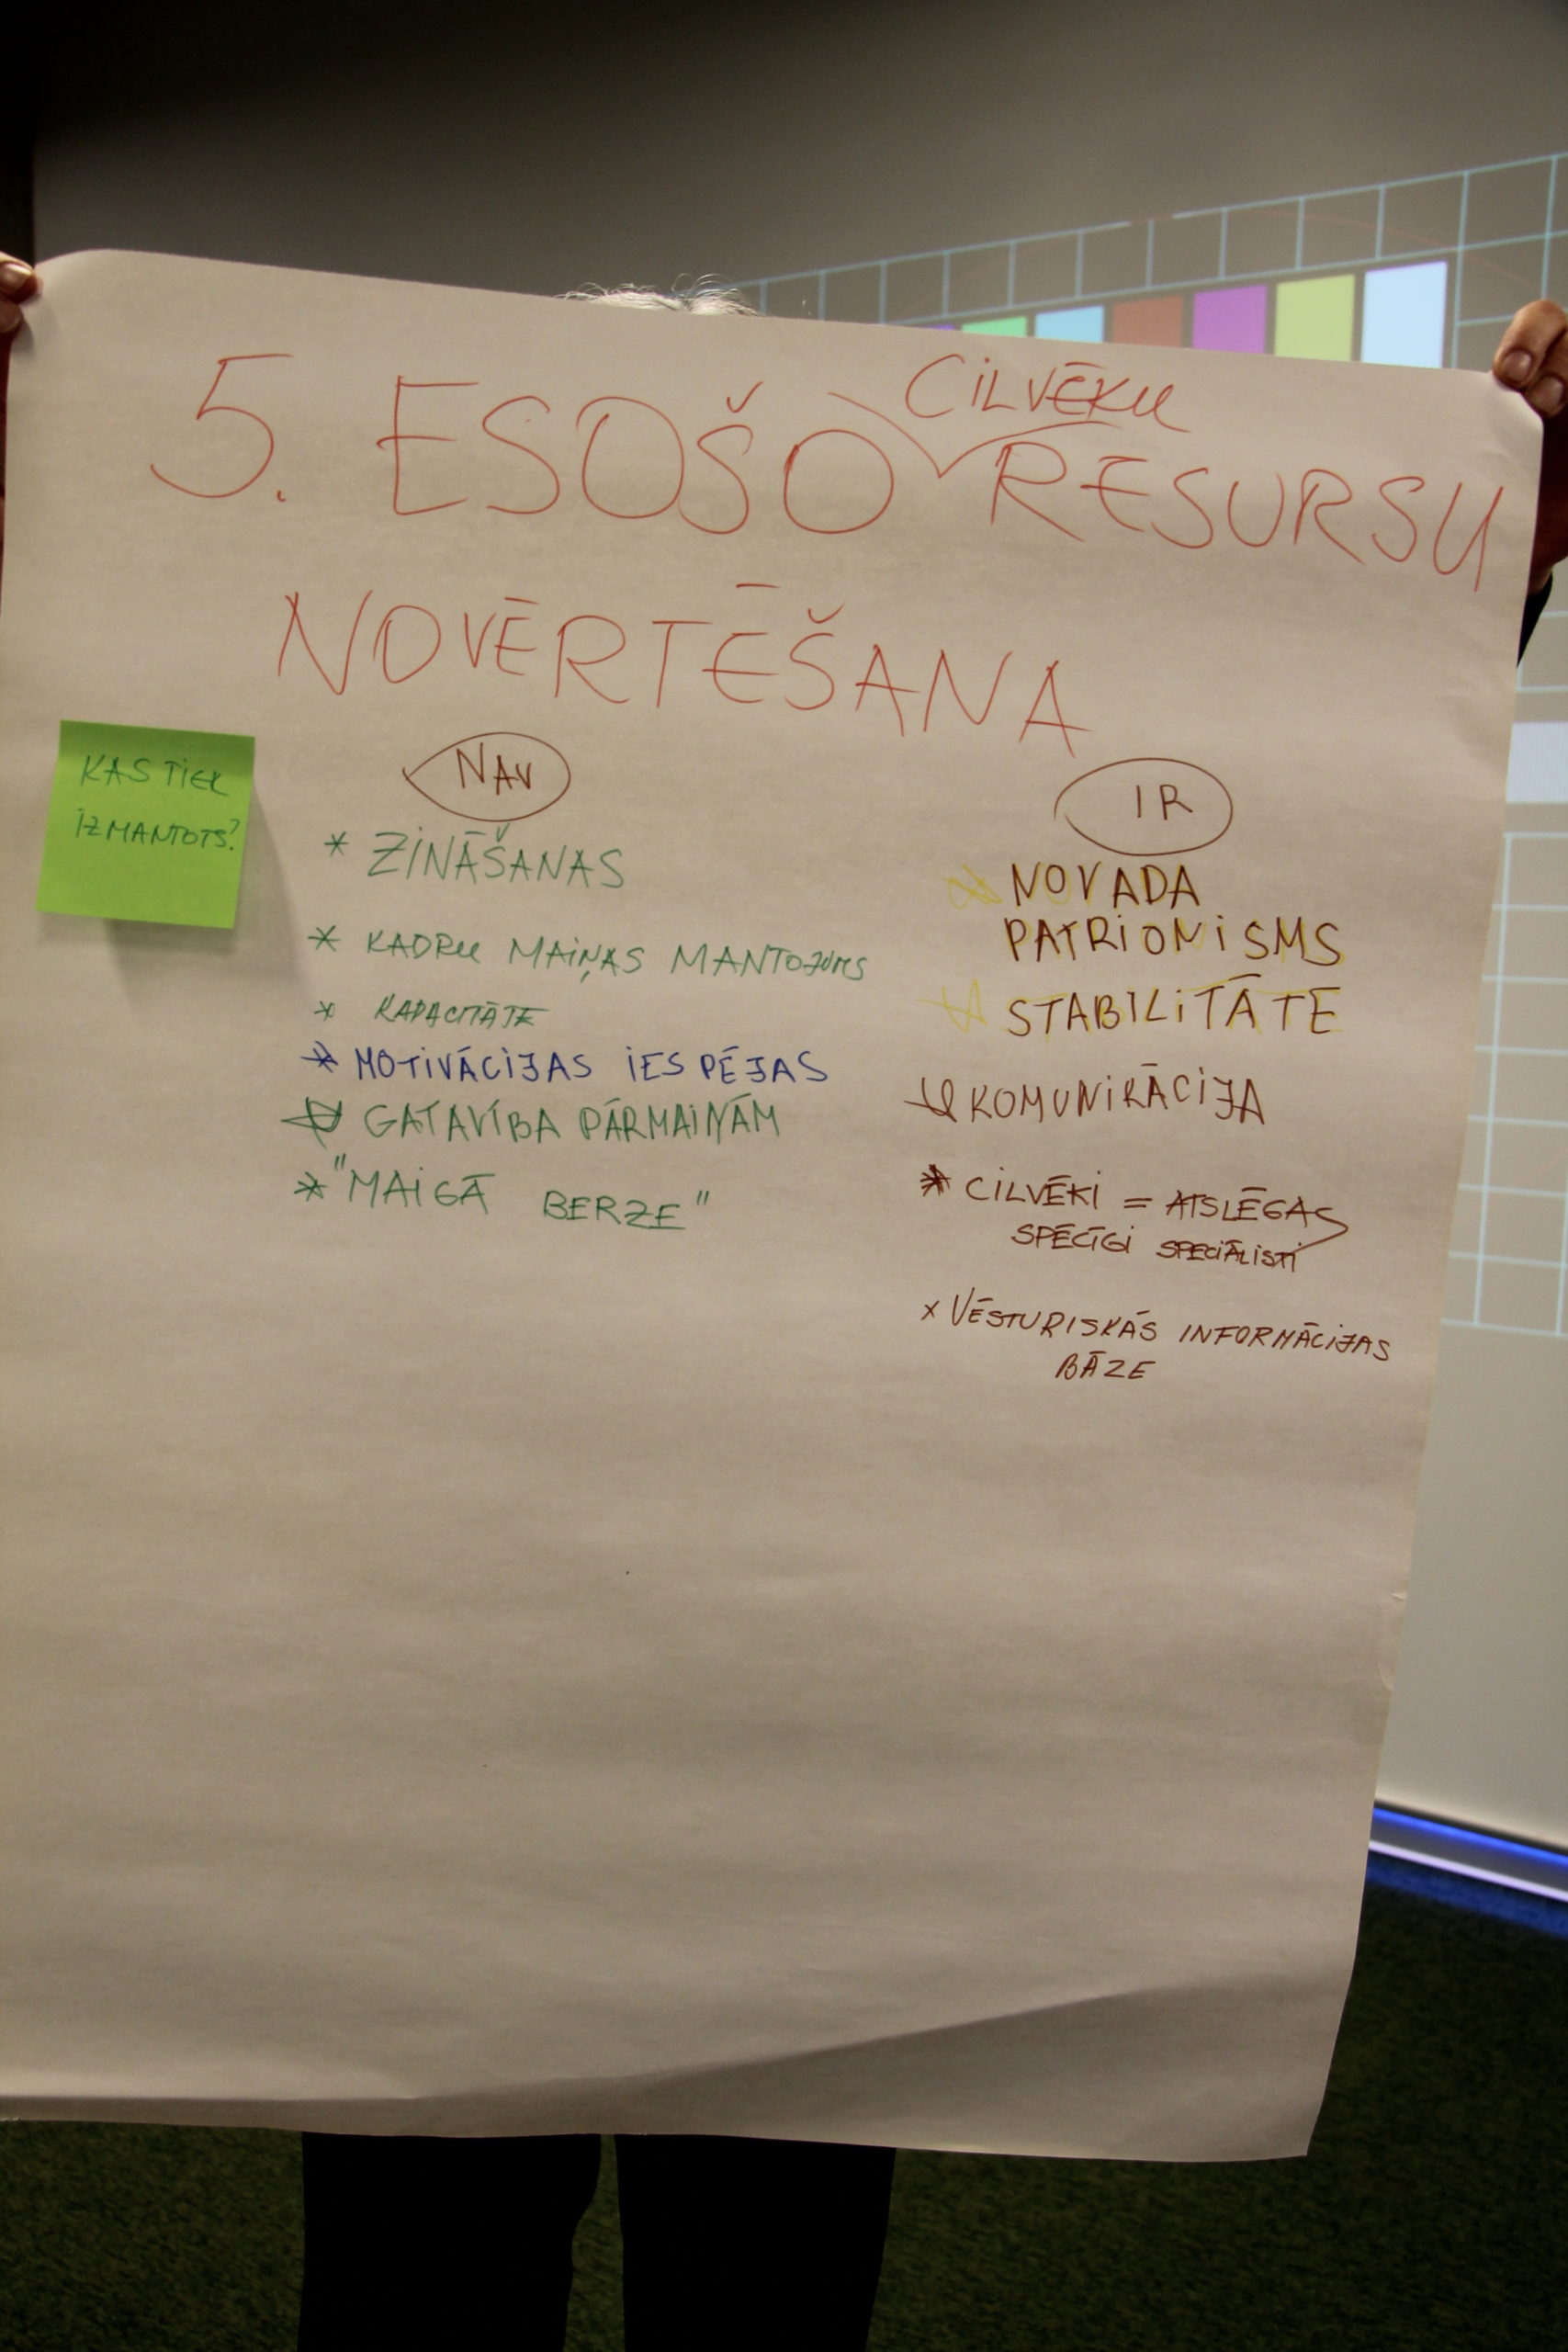 CILVĒKU
5. ESOŠO RESURSU
NOVĒRTĒŠANA
KAS TIEK
IZMANTOTS?
NAV
* ZINĀŠANAS
* KADRU MAIŅAS MANTOJUMS
* KAPACITĀTE
* MOTIVĀCIJAS IESPĒJAS
* GATAVĪBA PĀRMAIŅĀM
* "MAIGĀ BERZE"
IR
* NOVADA
PATRIONISMS
* STABILITĀTE
* KOMUNIKĀCIJA
* CILVĒKI = ATSLĒGAS
SPĒCĪGI SPECIĀLISTI
x VĒSTURISKĀS INFORMĀCIJAS
BĀZE